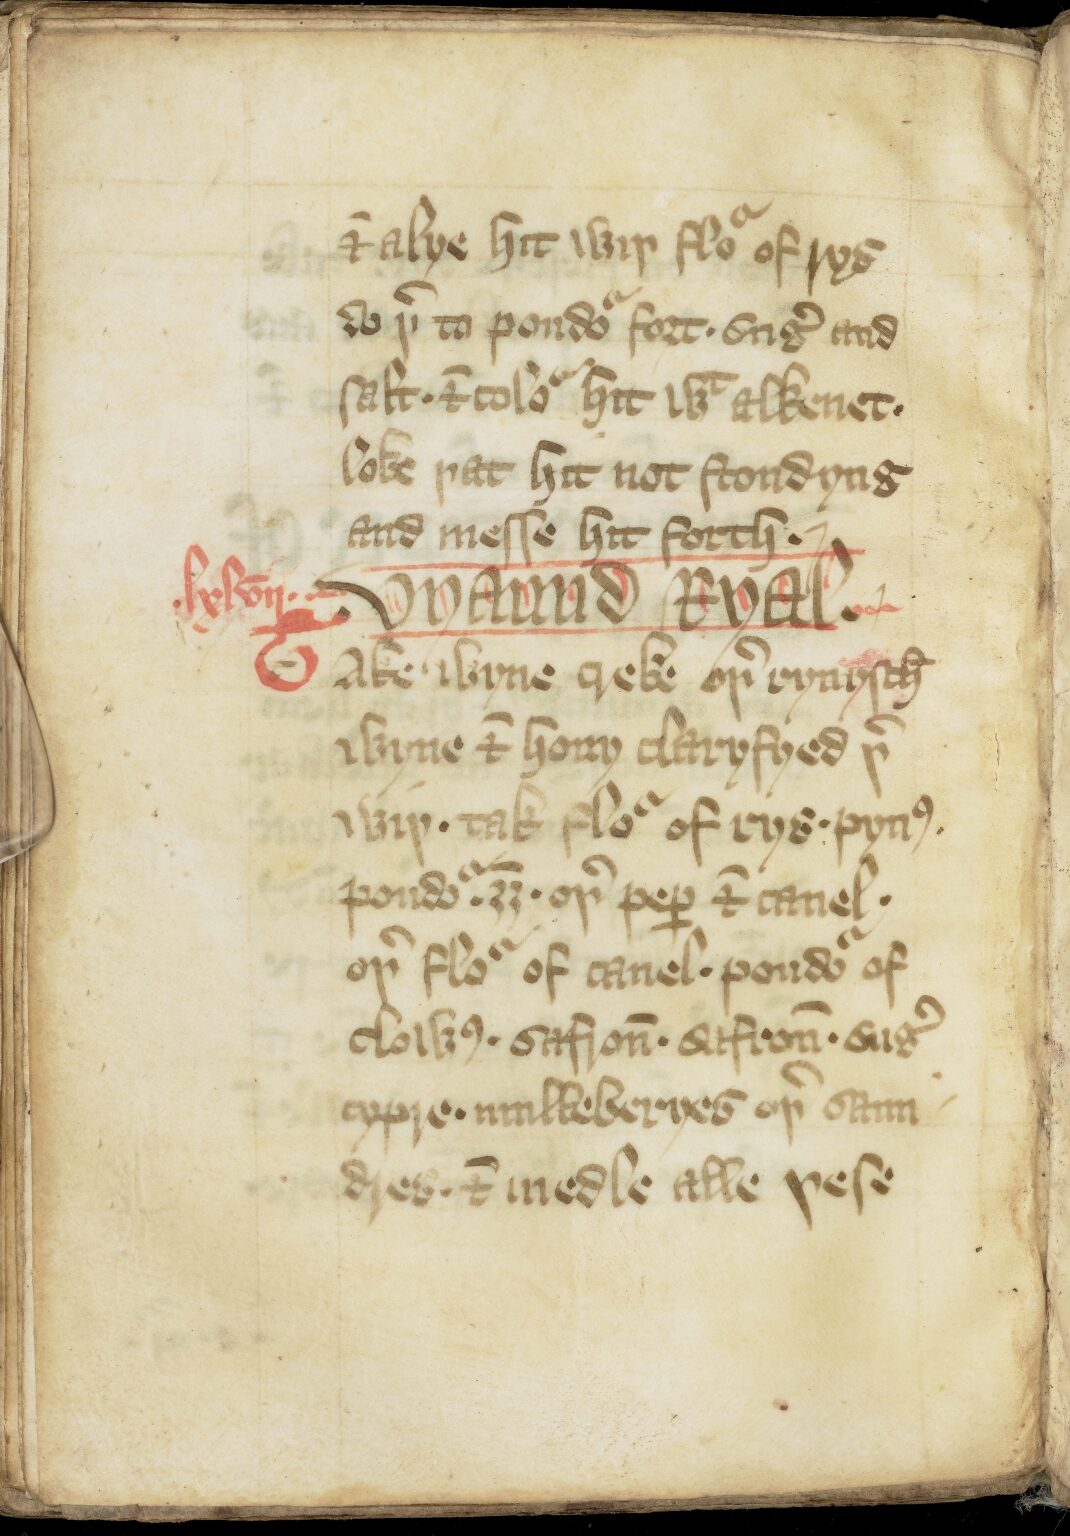 ⁊ alye hit wiþ floᵃ of rys
do þ̉ to poudoᵃ fort · sug̉ and
salt · ⁊ coloᵃ hit wᵗ alkenet ·
loke þat hit not stondyng
and messe hit forth ·
· lxlvii · · Vyaund Ryal ·
Take wyne greke oþ̉ rynysch
wyne ⁊ hony claryfyed þ̉
wiþ · tak floᵃ of rys · pynꝰ ·
poudoᵃ · ʒʒ · oþ̉ peꝑ ⁊ canel ·
oþ̉ floᵃ of canel · poudoᵃ of
clowꝰ · safron̄ · safron̄ · sug̉
cypre · mulleberyes oþ̉ saun
dres · ⁊ medle alle þese